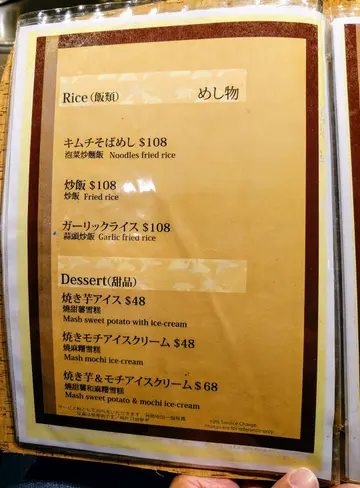 Rice (飯類) めし物
キムチそばめし $108
泡菜炒麵飯 Noodles fried rice
炒飯 $108
炒飯 Fried rice
ガーリックライス $108
蒜頭炒飯 Garlic fried rice
Dessert(甜品)
焼き芋アイス $48
燒甜薯雪糕
Mash sweet potato with ice-cream
焼きモチアイスクリーム $48
燒麻糬雪糕
Mash mochi ice-cream
焼き芋&モチアイスクリーム $68
燒甜薯和麻糬雪糕
Mash sweet potato & mochi ice-cream
10% Service Charge